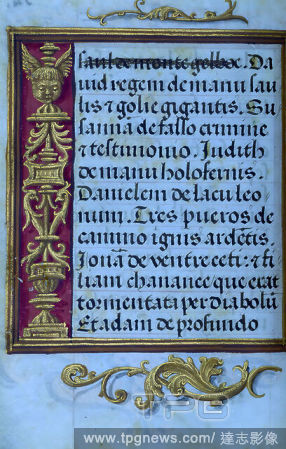 saul de monte gelboe. Da
uid regem de manu sau
lis ⁊ golie gigantis. Su
sanna de falso crimine
⁊ testimonio. Judith
de manu holofernis.
Danielem de lacu leo
num. Tres pueros de
camino ignis ardẽtis.
Jonã de ventre ceti: ⁊ fi
liam chananee que erat
tormentata per diabolũ
Et adam de profundo
TPG
www.tpgnews.com/達志影像